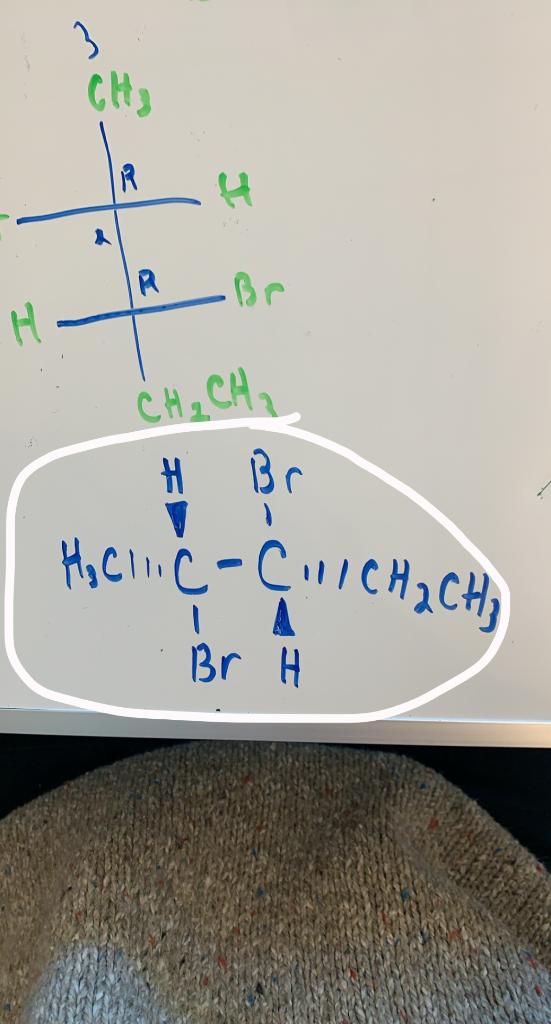 3
CH3
R
H
2
R
Br
H
CH2CH3
H Br
H3C'''C-C'''CH2CH3
Br H